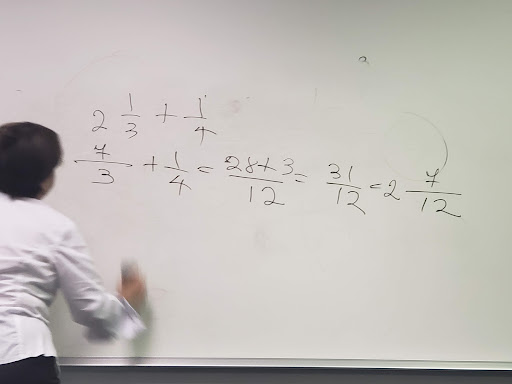 2 1/3 + 1/4
7/3 + 1/4 = 28+3/12 = 31/12 = 2 7/12